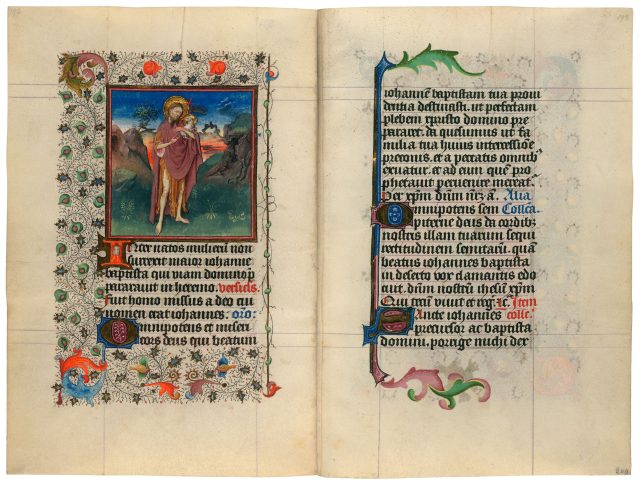 Inter natos mulierū non
surrexit maior iohanne
baptista qui viam domino p̄
parauit in heremo. versicls.
fuit homo missus a deo cui
nomen erat iohannes. oro.
Omnipotens et miseri
cors deus qui beatum
iohannē baptistam tua proui
dentia destinasti. ut perfectam
plebem xpristo domino pre
pararet. da quesumus ut fa
milia tua huius intercessiōe
preconis. et a peccatis omnib
exuatur. et ad eum quē pro
phetauit peruenire mereat.
Per xpm̄ dn̄m nr̄m a. Alia
Omnipotens sem Colleca.
piterne deus da cordib
nostris illam tuarum sequi
rectitudinem semitarū. quā
beatus iohannes baptista
in deserto vox clamantis edo
cuit. dn̄m nostrū ihesū xpm̄
Qui tecū viuit et reg. zc. Item
Sancte iohannes colle.
precursor ac baptista
domini. porrige michi dex